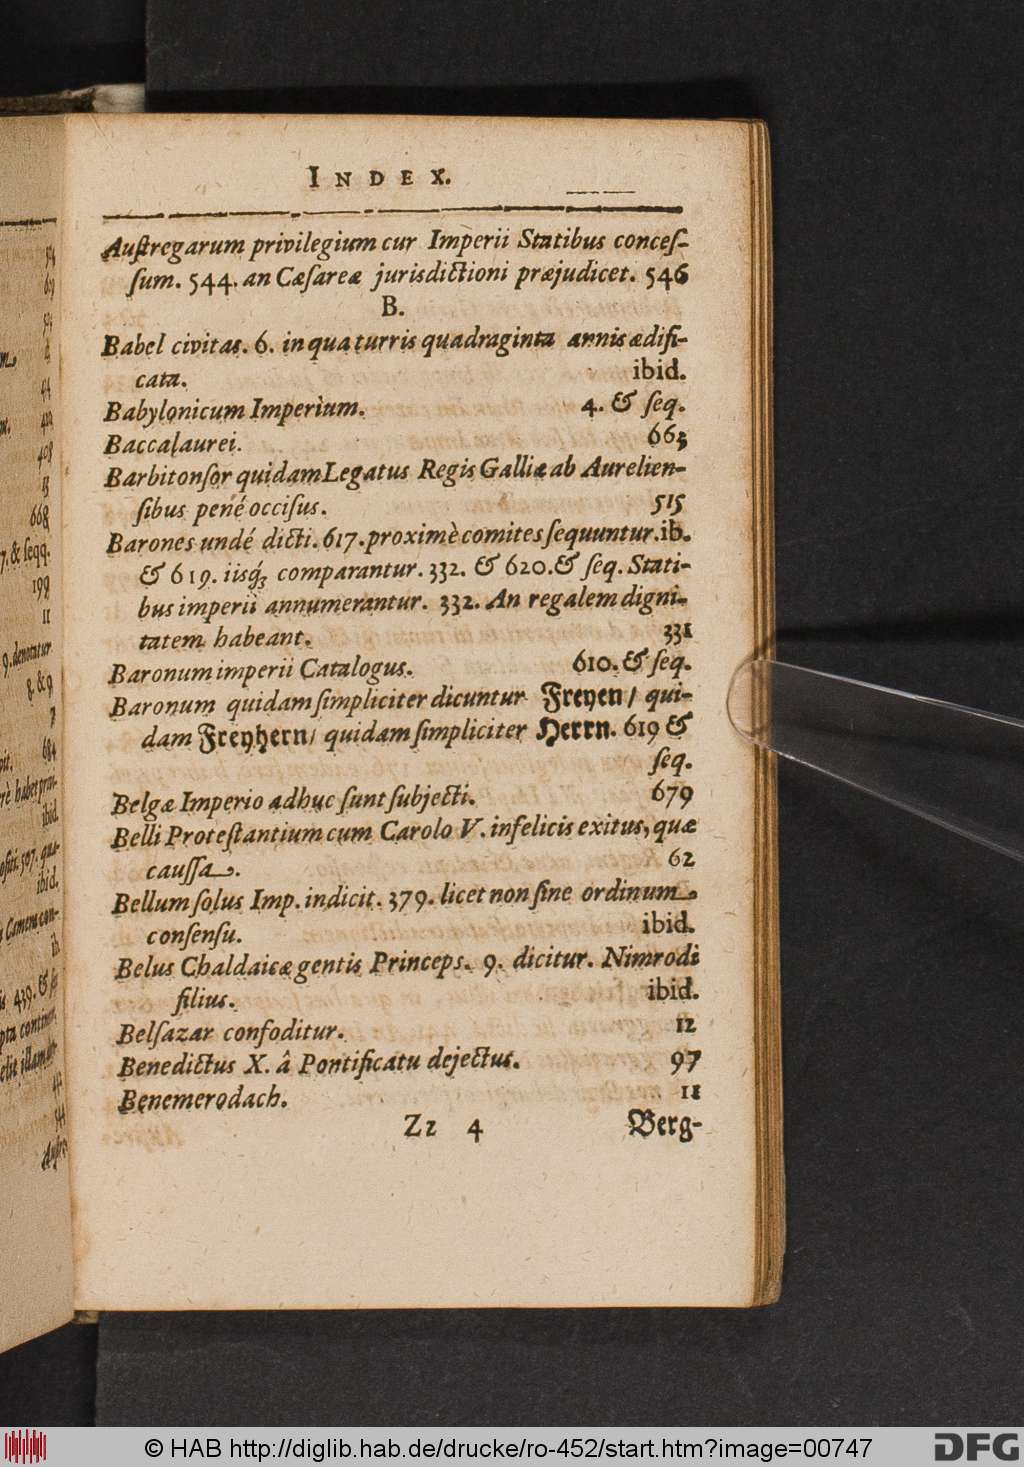 INDEX.
Auſtregarum privilegium cur Imperii Statibus conceſ-
ſum. 544. an Cæſareæ jurisdictioni præjudicet. 546
B.
Babel civitas. 6. in qua turris quadraginta annis ædifi-
cata. ibid.
Babylonicum Imperìum. 4. & ſeq.
Baccalaurei. 663
Barbitonſor quidam Legatus Regis Galliæ ab Aurelien-
ſibus pené occiſus. 515
Barones undé dicti. 617. proximè comites ſequuntur. ib.
& 619. iisq́ꝫ comparantur. 332. & 620. & ſeq. Stati-
bus imperii annumerantur. 332. An regalem digni-
tatem habeant. 331
Baronum imperii Catalogus. 610. & ſeq.
Baronum quidam ſimpliciter dicuntur Freyen/ qui-
dam Freyhern/ quidam ſimpliciter Herrn. 619 &
ſeq.
Belgæ Imperio adhuc ſunt ſubjecti. 679
Belli Proteſtantium cum Carolo V. infelicis exitus, quæ
cauſſa. 62
Bellum ſolus Imp. indicit. 379. licet non ſine ordinum
conſenſu. ibid.
Belus Chaldaicæ gentis Princeps. 9. dicitur. Nimrodi
filius. ibid.
Belſazar confoditur. 12
Benedictus X. â Pontificatu dejectus. 97
Benemerodach. 11
Zz 4 Berg-
54
619
4
44
419
408
13
668
7. & ſeqq.
199
11
9. denotatur
8. & 9
7
684
ibid.
ibid.
ib.
439. & ſeq
544
Auſtre-
© HAB http://diglib.hab.de/drucke/ro-452/start.htm?image=00747
DFG